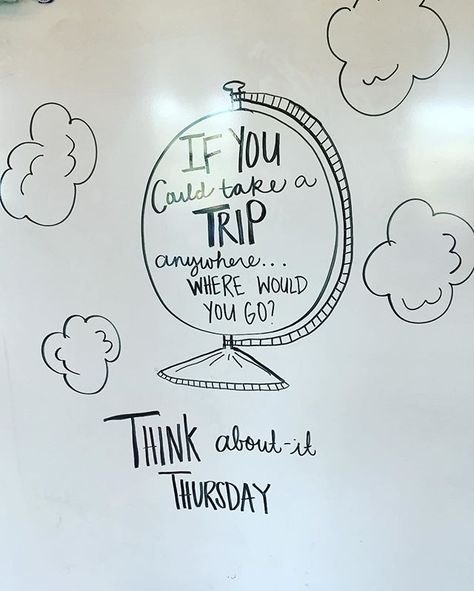 IF YOU
Could take a
TRIP
anywhere...
WHERE WOULD
YOU GO?
THINK about-it
THURSDAY